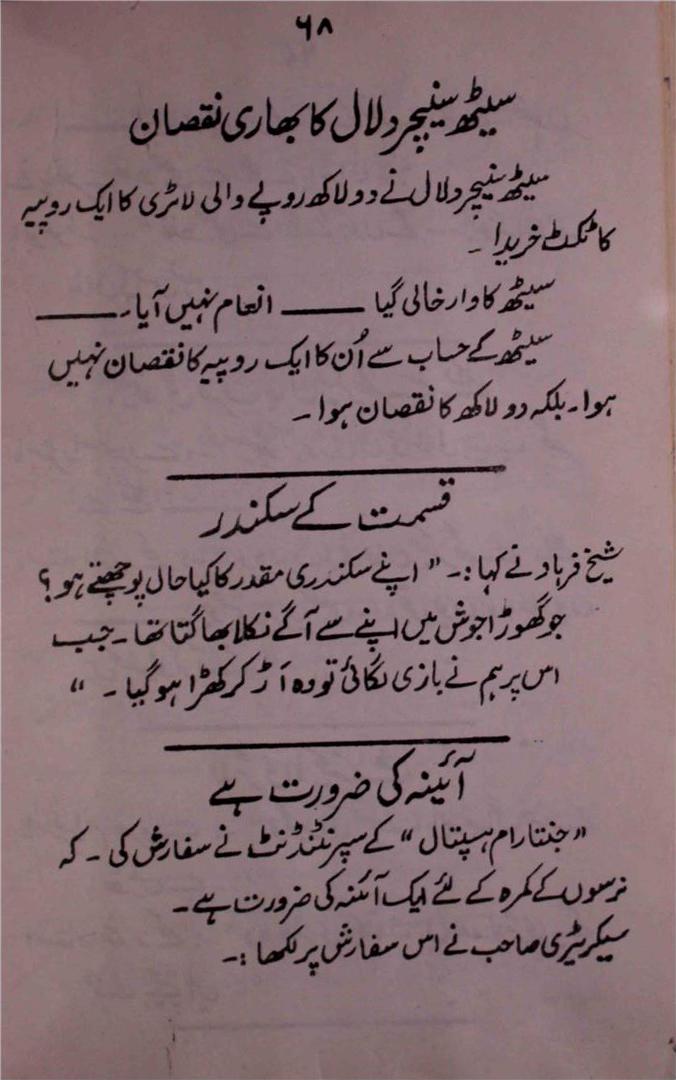 ۶۸
سیٹھ سنیچر دلال کا بھاری نقصان
سیٹھ سنیچر دلال نے دو لاکھ روپے والی لاٹری کا ایک روپیہ
کا ٹکٹ خریدا۔
سیٹھ کا وار خالی گیا ـــــــ انعام نہیں آیا۔ ـــــــ
سیٹھ کے حساب سے اُن کا ایک روپیہ کا نقصان نہیں
ہوا۔ بلکہ دو لاکھ کا نقصان ہوا۔
قسمت کے سکندر
شیخ فرہاد نے کہا :۔ " اپنے سکندری مقدر کا کیا حال پوچھتے ہو؟
جو گھوڑا جوش میں اپنے سے آگے نکلا بھاگتا تھا۔ جب
اس پر ہم نے بازی لگائی تو وہ اَڑ کر کھڑا ہو گیا۔ "
آئینہ کی ضرورت ہے
"جنتا رام ہسپتال" کے سپرنٹنڈنٹ نے سفارش کی۔ کہ
نرسوں کے کمرہ کے لئے ایک آئنہ کی ضرورت ہے۔
سیکریٹری صاحب نے اس سفارش پر لکھا :۔